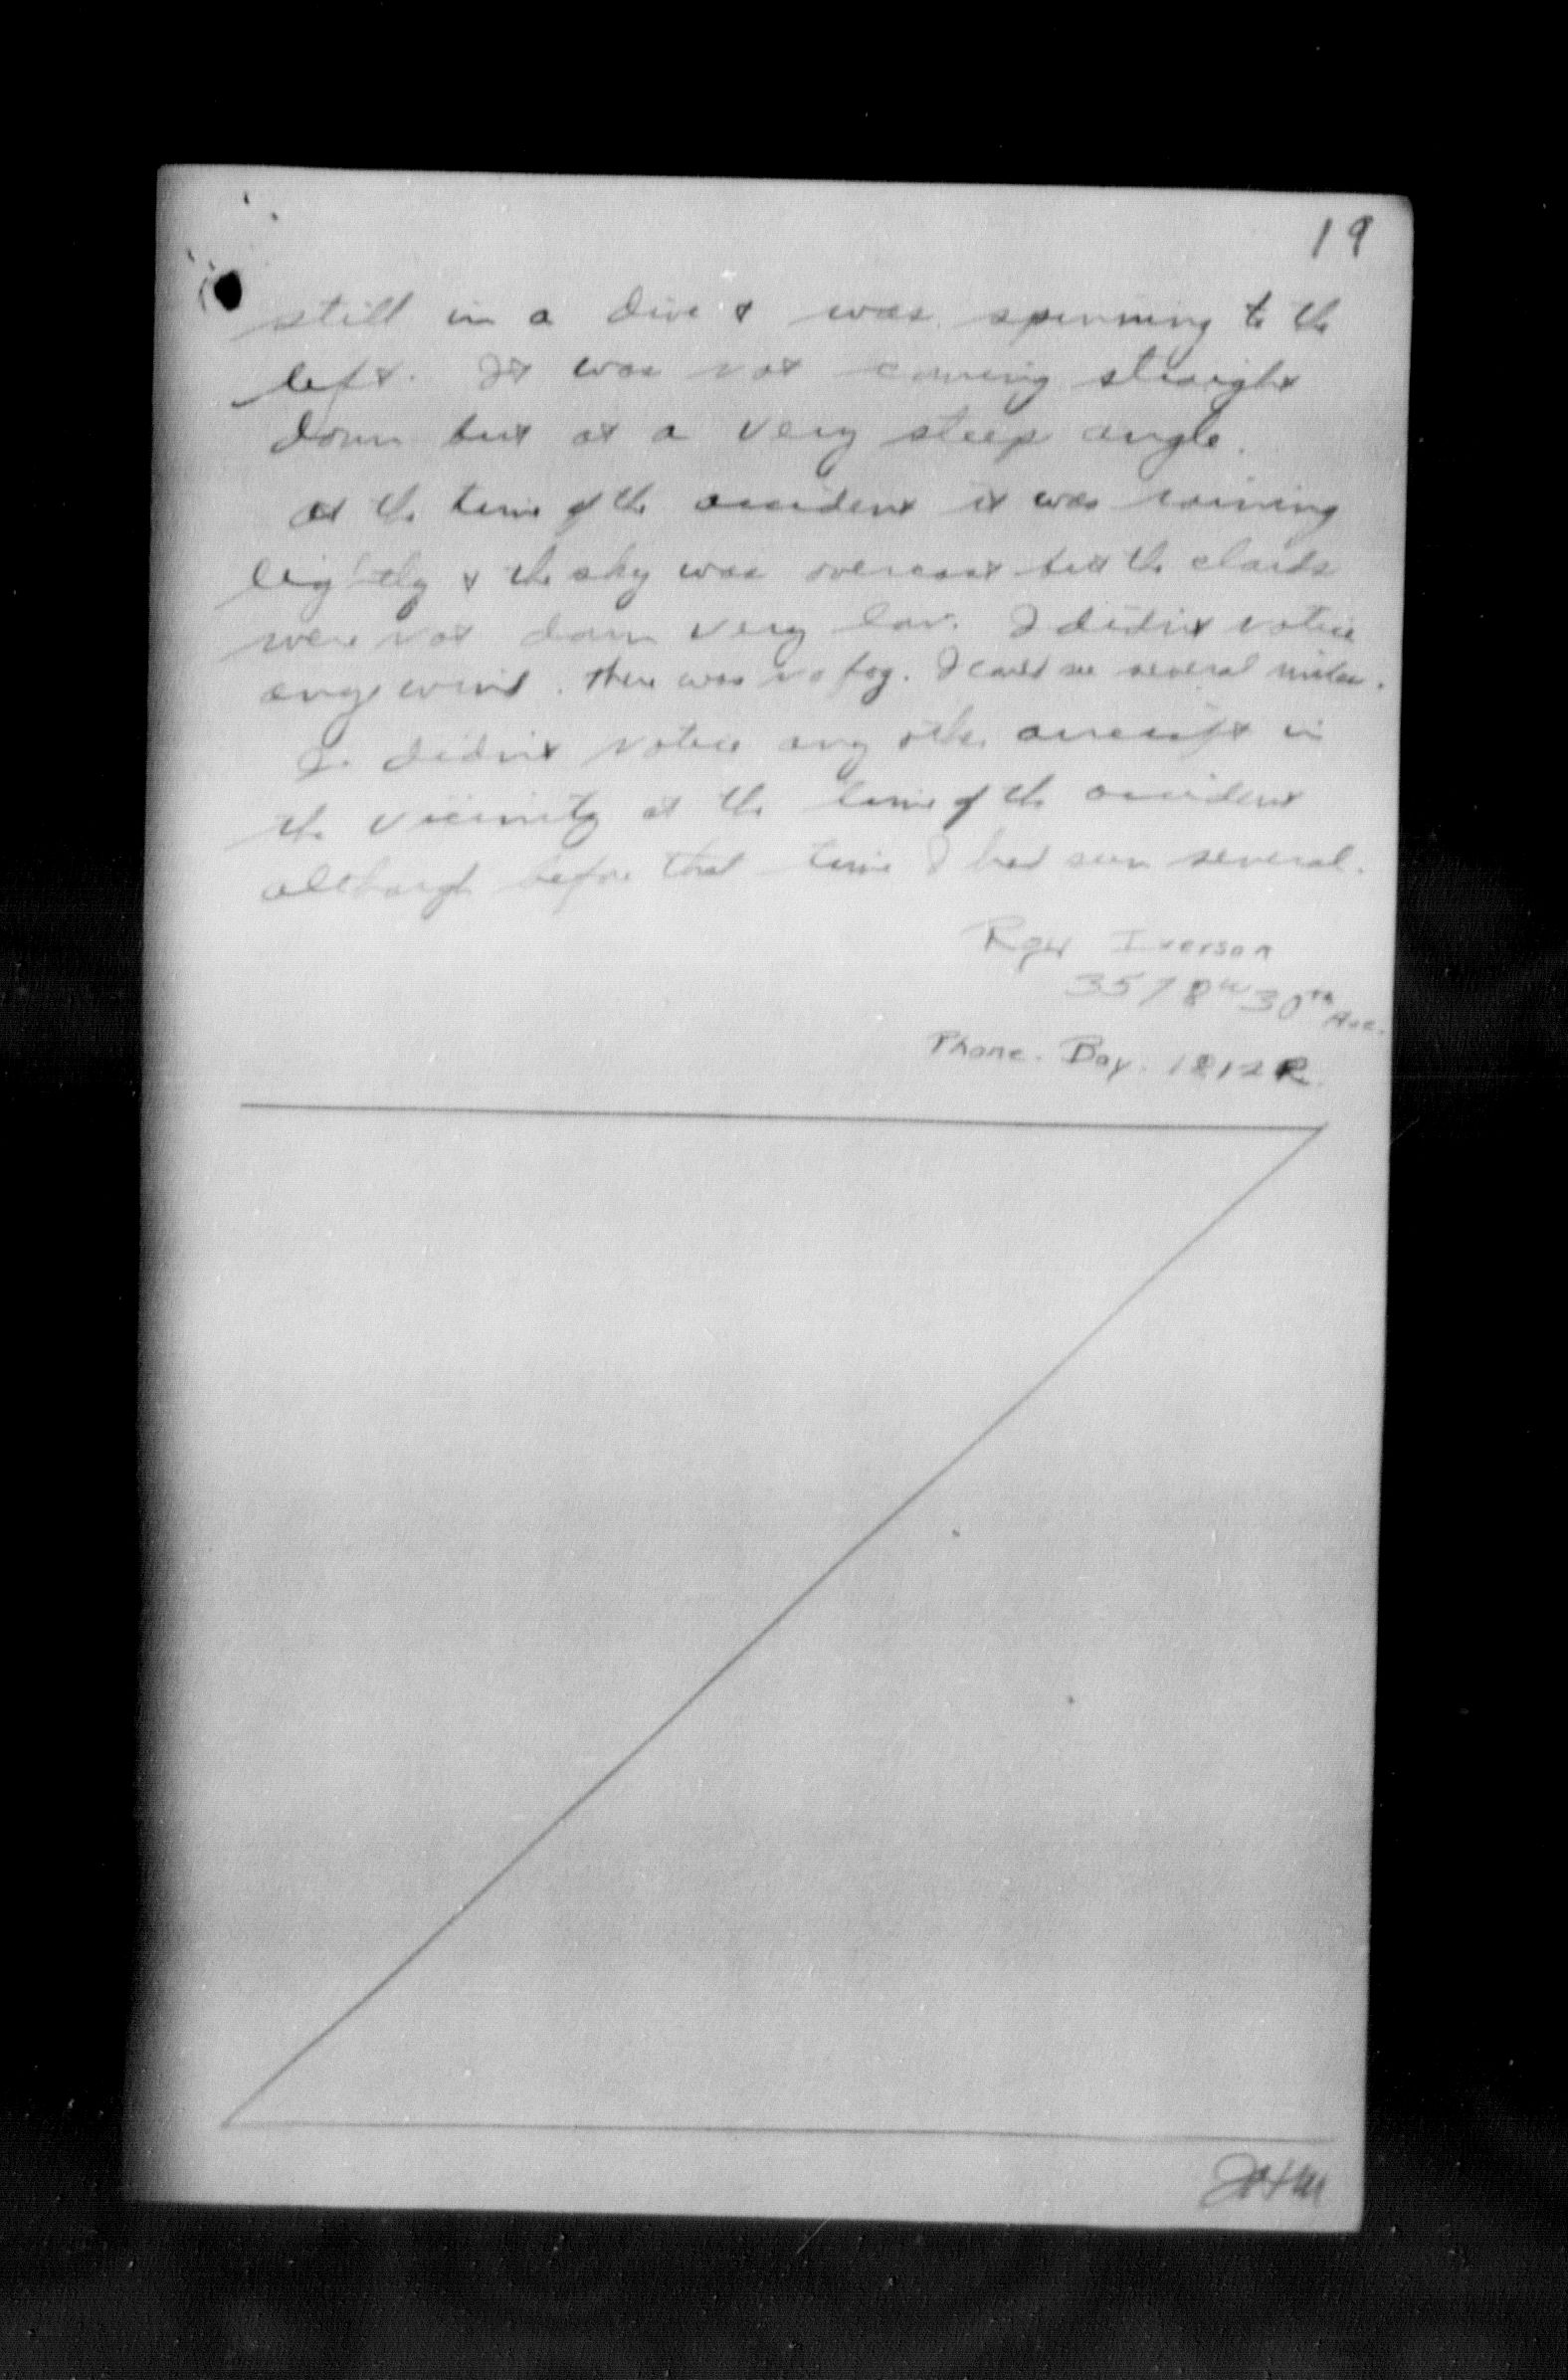 19
still in a dive & was spinning to the
left. It was not coming straight
down but at a very steep angle.
at the time of the accident it was raining
lightly & the sky was overcast but the clouds
were not down very low. I didn't notice
any wind. There was no fog. I could see several miles.
I didn't notice any other aircraft in
the vicinity at the time of the accident
although before that time I had seen several.
Roger Iverson
3578 W 30th Ave.
Phone. Bay. 1812 R.